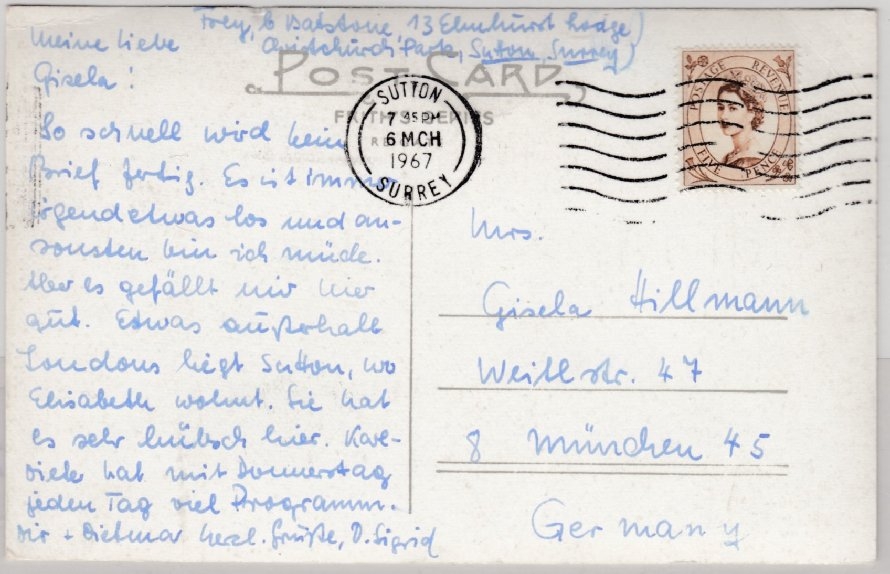 Frey, b Batstone 13 Elmhurst Lodge)
Christchurch Park, Sutton, Surrey)
Meine liebe
Gisela!
So schnell wird kein
Brief fertig. Es ist immer
irgendetwas los und an-
sonsten bin ich müde.
Aber es gefällt mir hier
gut. Etwas außerhalb
Londons liegt Sutton, wo
Elisabeth wohnt. Sie hat
es sehr hübsch hier. Karl-
Dieter hat mit Donnerstag
jeden Tag viel Programm.
Dir + Dietmar herzl. Grüße, D. Sigrid
POST CARD
FRITH'S SERIES
SUTTON
7 45 PM
6 MCH
1967
SURREY
POSTAGE REVENUE
FIVE PENCE
Mrs.
Gisela Hillmann
Weitlstr. 47
8 München 45
Germany